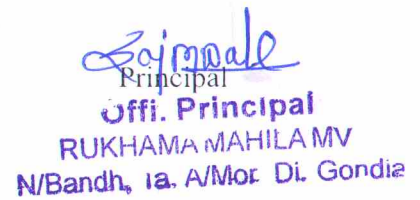 Principal
Offi. Principal
RUKHAMA MAHILA MV
N/Bandh, A/Mor. Di. Gondia